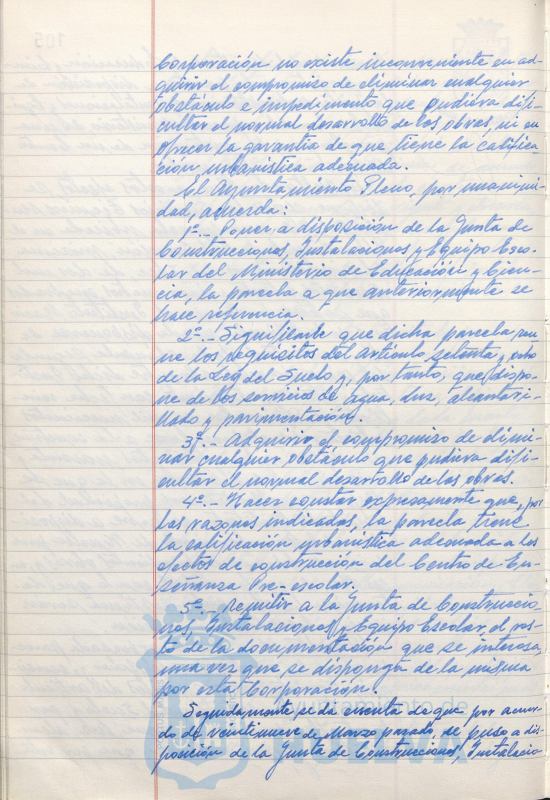 Corporación no existe inconveniente en ad-
quirir el compromiso de eliminar cualquier
obstáculo e impedimento que pudiera difi-
cultar el normal desarrollo de las obras, ni en
ofrecer la garantía de que tiene la califica-
ción urbanística adecuada.
El Ayuntamiento Pleno, por unanimi-
dad, acuerda:
1º.- Poner a disposición de la Junta de
Construcciones, Instalaciones y Equipo Esco-
lar del Ministerio de Educación y Cien-
cia, la parcela a que anteriormente se
hace referencia.
2º.- Significarle que dicha parcela reu-
ne los requisitos del artículo setenta y ocho
de la Ley del Suelo y, por tanto, que dispo-
ne de los servicios de agua, luz, alcantari-
llado y pavimentación.
3º.- Adquirir el compromiso de elimi-
nar cualquier obstáculo que pudiera difi-
cultar el normal desarrollo de las obras.
4º.- Hacer constar expresamente que, por
las razones indicadas, la parcela tiene
la calificación urbanística adecuada a los
efectos de construcción del Centro de En-
señanza Pre-escolar.
5º.- Remitir a la Junta de Construccio-
nes, Instalaciones y Equipo Escolar, el res-
to de la documentación que se interesa,
una vez que se disponga de la misma
por esta Corporación.
Seguidamente se da cuenta de que por acuer-
do de veintinueve de Marzo pasado, se puso a dis-
posición de la Junta de Construcciones, Instalacio